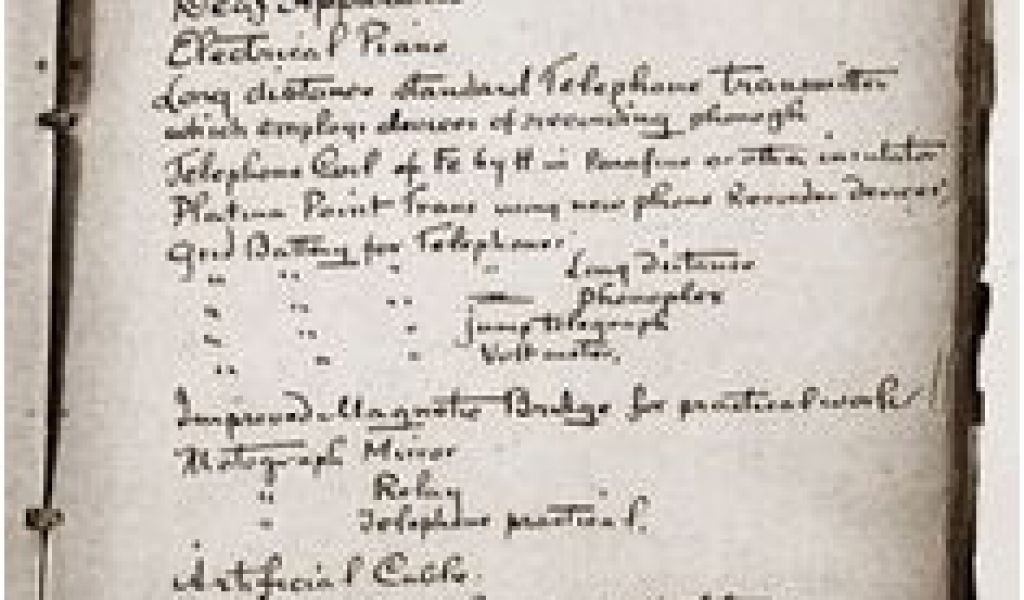 Deaf Apparatus
Electrical Piano
Long distance standard Telephone transmitter
which employs devices of recording phonogh
Telephone Coil of Fe by H in Parafine or other insulator
Platina Point Trans using new phono Recorder Devices,
Grd Battery for Telephones
" " " " Long Distance
" " " Phonoplex
" " " jump telegraph
" " " Voltmeter.
Improved Magnetic Bridge for practical work
Motograph Mirror
" Relay
" Telephone practical.
Artificial Cable.